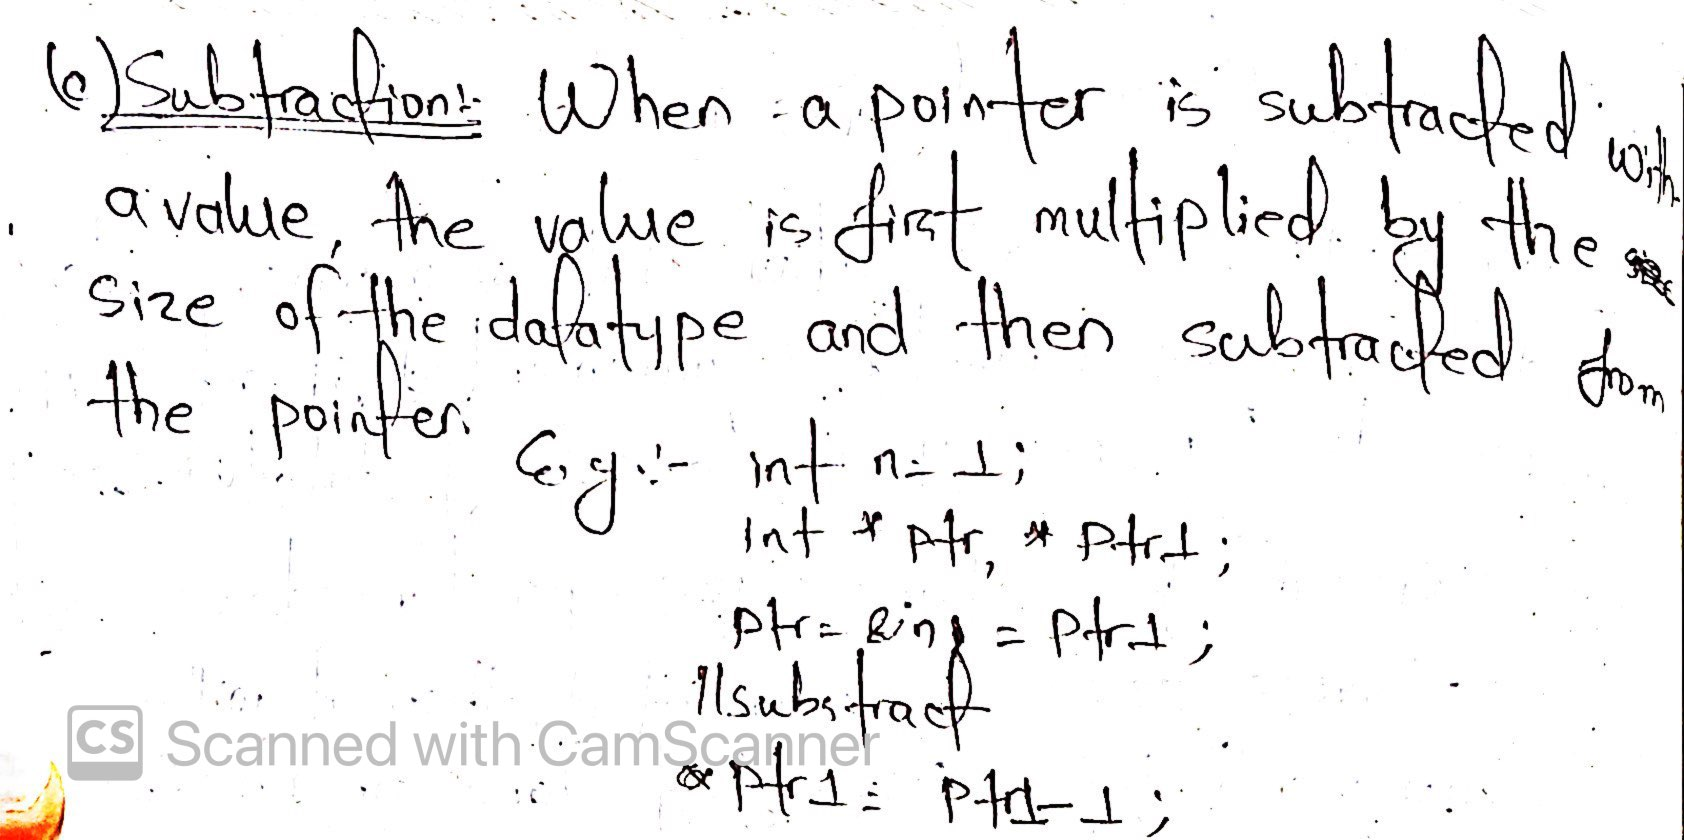 (c) Subtraction:- When a pointer is subtracted with
a value, the value is first multiplied by the
size of the datatype and then subtracted from
the pointer.
E.g:- int n=1;
int * ptr, * ptr1;
ptr= &n = ptr1;
//substract
ptr1 = ptr1-1;
CS Scanned with CamScanner